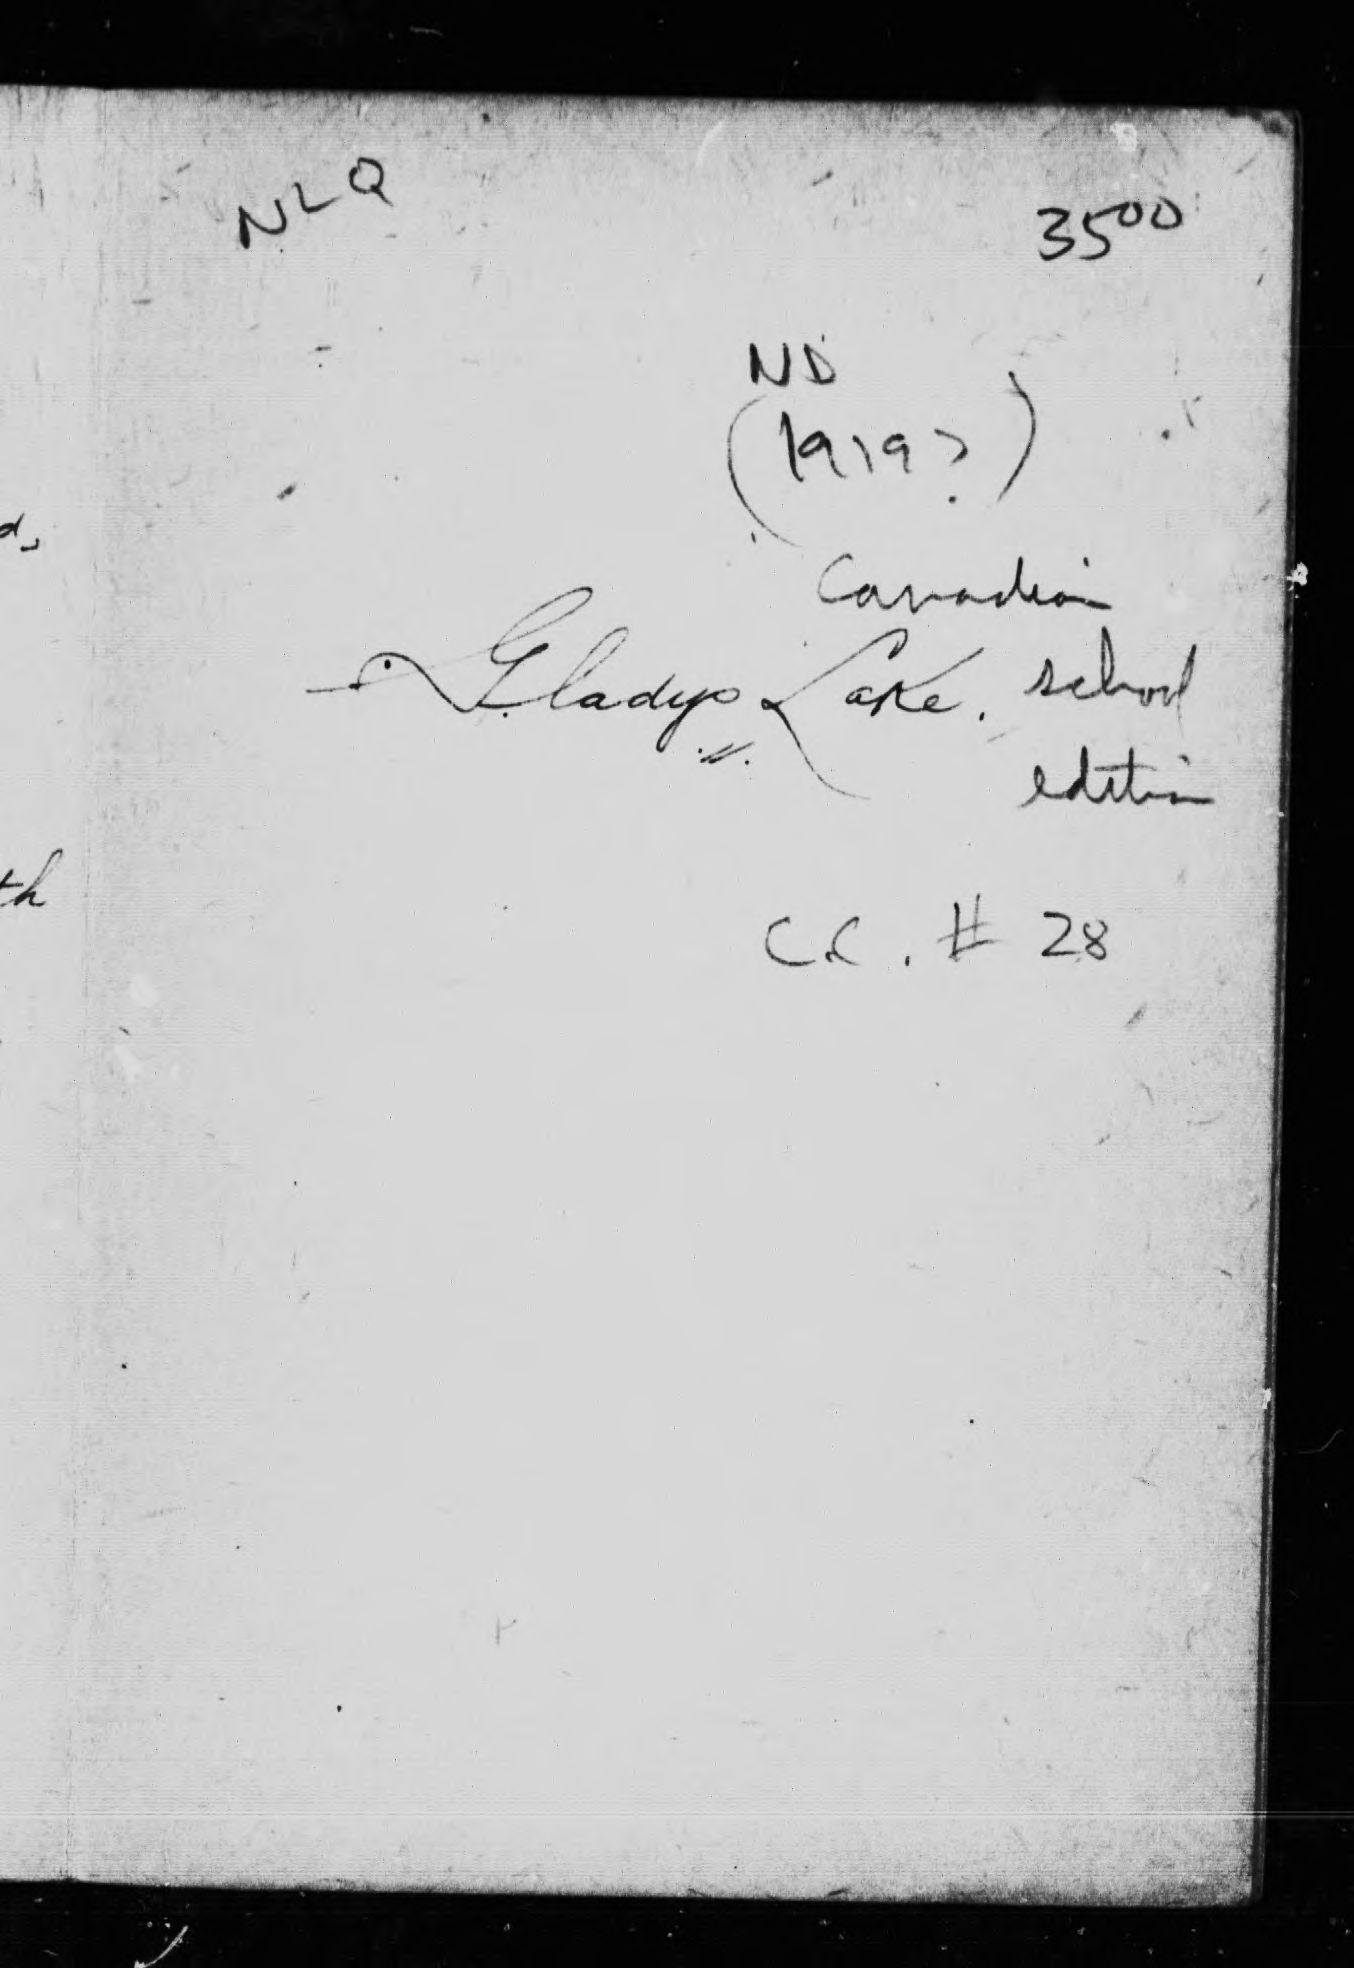 NLQ
35⁰⁰
ND
(1919?)
Canadian
Gladys Lake. school
edition
C.C. # 28
th